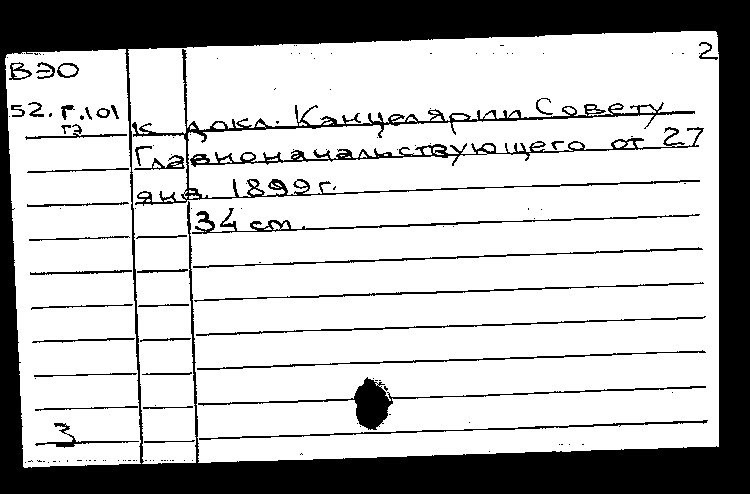 2
ВЭО
52. Г.101
ГЭ
к докл. Канцелярии Совету
Главноначальствующего от 27
янв. 1899 г.
34 ст.
3